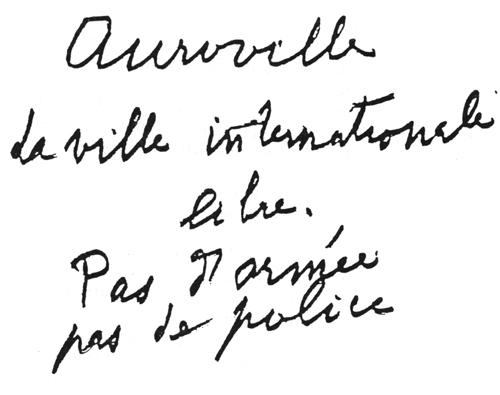 Auroville
la ville internationale
libre.
Pas d'armée
pas de police